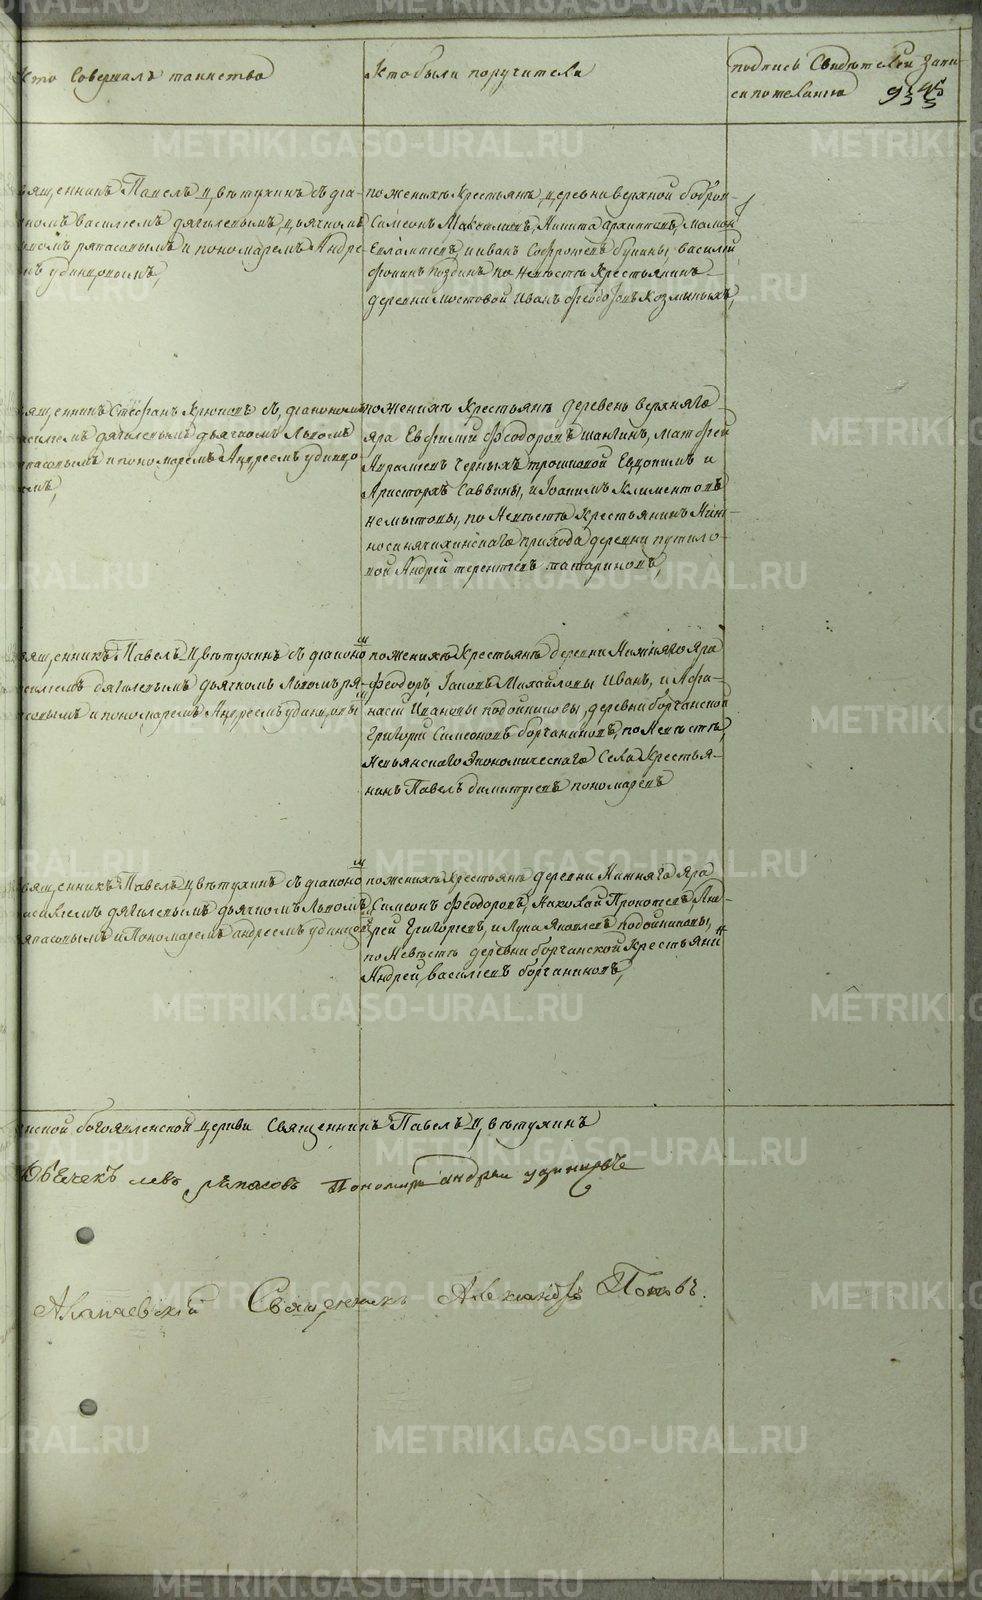 Кто Совершалъ таинство
Кто были поручители
подпись Свидѣтелей Запи-
си по желанию
священникъ Павелъ Цвѣтухинъ съ діа-
кономъ василіемъ дягилевымъ, дьячкомъ
Львомъ ряпасовымъ и пономаремъ Андре-
емъ удинцовымъ,
по женихѣ Крестьянѣ, деревни верхной бобров-
Симеонъ Максимовъ, Никита архиповъ, мамон
Евлампіевъ, и иванъ Софроновъ бунины, василій
фокинъ поздинъ по Невѣстѣ Крестьянинъ
деревни мостовой Иванъ феодоровъ Козминыхъ,
священникъ Стефанъ Крюковъ съ діакономъ
василіемъ дягилевымъ дьячкомъ Львомъ
ряпасовымъ и пономаремъ Андреемъ удинцо-
вымъ,
по женихѣ Крестьянѣ деревень верхняго
яра Евфимій феодоровъ шангинъ, Матфей
Аврамовъ черныхъ трошковой Евдокимъ и
Аристархъ Саввины, и Іоакимъ Климентовъ
немытовы, по Невѣстѣ Крестьянинъ Ниж-
носинячихинскаго прихода деревни путило-
вой Андрей терентьевъ татариновъ,
священникъ Павелъ Цвѣтухинъ съ діаконом
василіемъ дягилевымъ дьячкомъ Львомъ ря-
пасовымъ и пономаремъ Андреемъ удинцовым
по женихѣ Крестьянѣ деревни Нижняго Яра
Феодоръ, Іаковъ Михайловы Иванъ, и Афа-
насій Ивановы подойниковы, деревни борчанской
Григорій Симеоновъ борчаниновъ, по Невѣстѣ,
Невьянскаго Экономическаго Села Крестья-
нинъ Павелъ димитріевъ пономаревъ
священникъ Павелъ Цвѣтухинъ съ діаконом
василіемъ дягилевымъ дьячкомъ Львомъ
ряпасовымъ и Пономаремъ андреемъ удинцов
по женихѣ Крестьянѣ деревни Нижняго Яра
Симеонъ Феодоровъ, Николай Прокопьевъ, Ан-
дрей Григорьевъ, и Лука Яковлевъ подойниковы,
по Невѣстѣ деревни борчанской Крестьянин
Андрей василіевъ борчаниновъ,
нской богоявленской церкви Священникъ Павелъ Цвѣтухинъ
левъ ряпасовъ Пономарь андрей удинцовъ
Алапаевскій Священникъ Александръ Поповъ.
METRIKI.GASO-URAL.RU